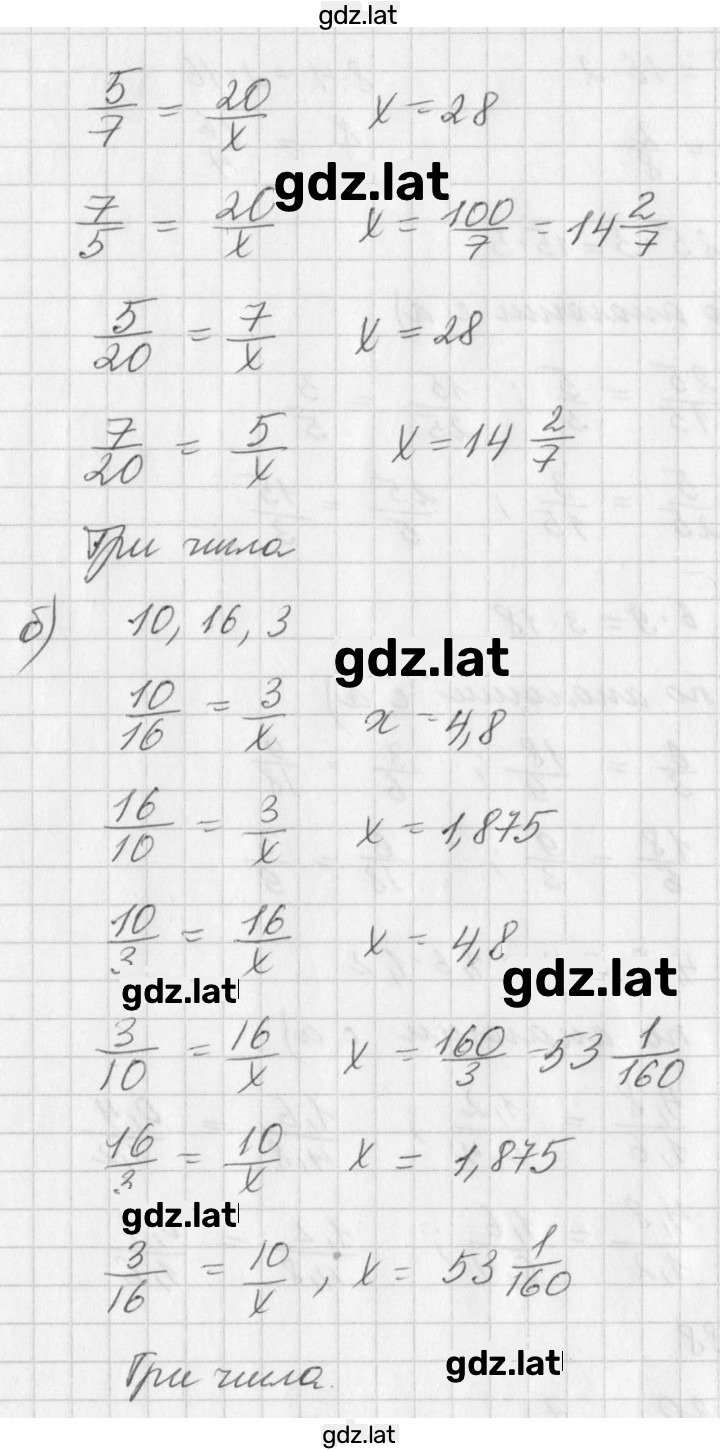 gdz.lat
5/7 = 20/x x = 28
gdz.lat
7/5 = 20/x x = 100/7 = 14 2/7
5/20 = 7/x x = 28
7/20 = 5/x x = 14 2/7
Три числа
б) 10, 16, 3
gdz.lat
10/16 = 3/x x = 4,8
16/10 = 3/x x = 1,875
10/3 = 16/x x = 4,8
gdz.lat gdz.lat
3/10 = 16/x x = 160/3 = 53 1/160
16/3 = 10/x x = 1,875
gdz.lat
3/16 = 10/x, x = 53 1/160
Три числа.
gdz.lat
gdz.lat